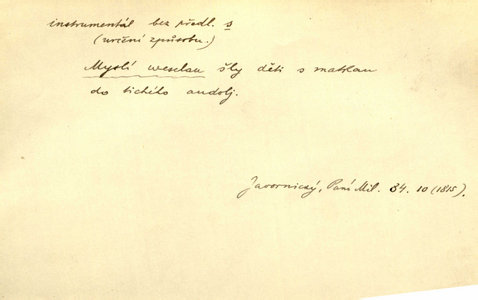 instrumentál bez předl. s
(určení způsobu.)
Myslí weselau šly děti s matkau
do tichého audolj.
Javornický, Paní Mil. 84. 10 (1815).